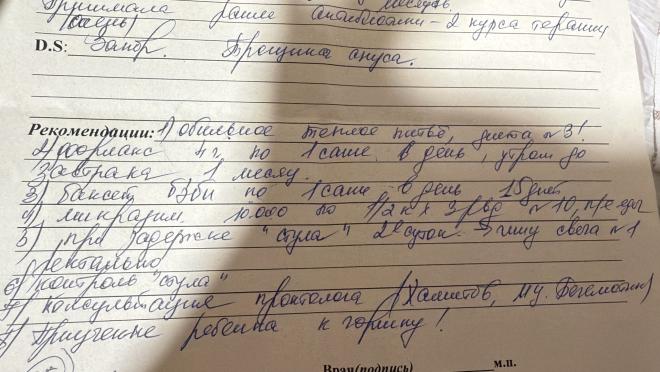 Принимала ранее антибиотики - 2 курса терапии
(осень)
D.S: Запор. Трещина ануса.
Рекомендации: 1) обильное теплое питьё, диета №3!
2) форлакс 4г по 1 саше в день, утром до
завтрака 1 месяц.
3) баксет бэби по 1 саше в день 15 дней
4) микразим 10.000 по 1/2 к х 3 р/д №10, при еде
5) при задержке "стула" 2е суток - глиц свеча №1
ректально
6) контроль "стула"
7) консультация проктолога (Хамитов,
8) Приучение ребенка к горшку!
Врач(подпись) м.п.